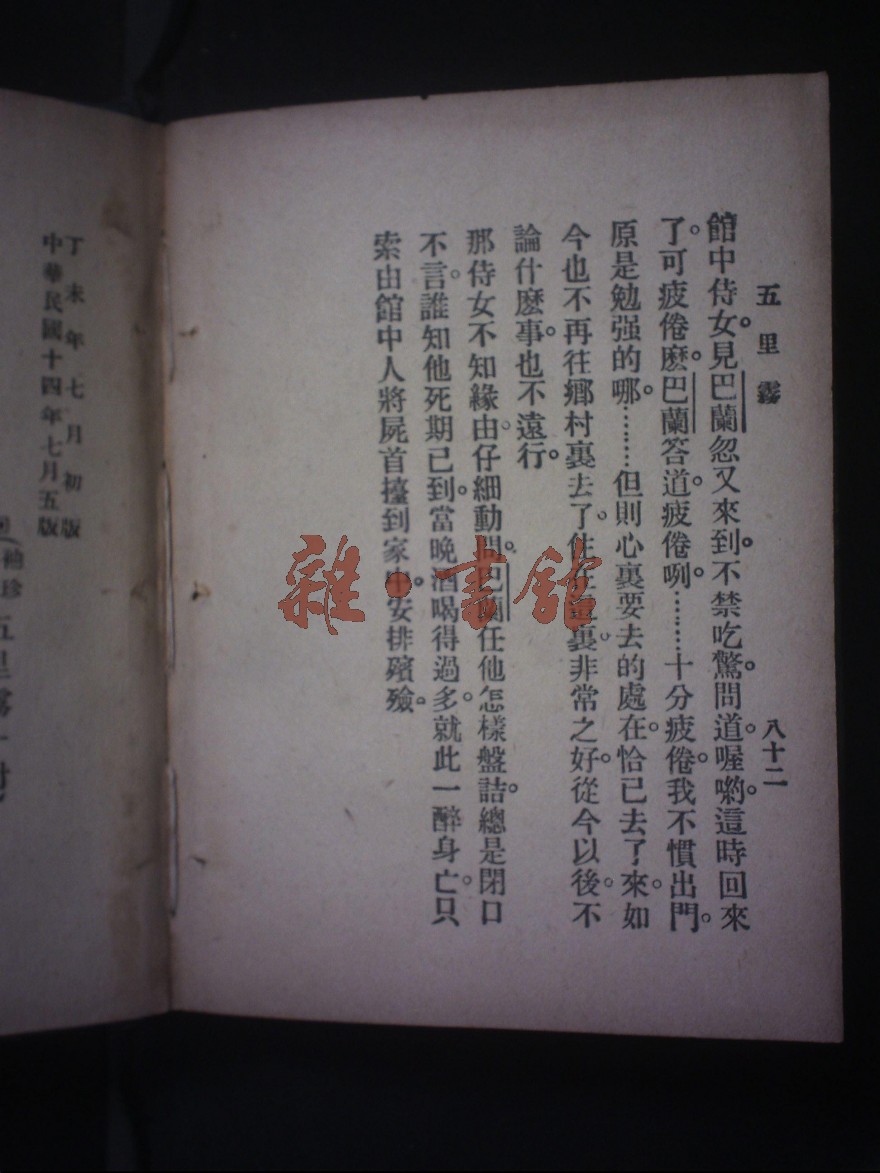 五里霧
八十二
館中侍女。見巴蘭忽又來到。不禁吃驚。問道。喔喲。這時回來
了。可疲倦麽。巴蘭答道。疲倦咧。………十分疲倦。我不慣出門。
原是勉强的哪。………但則心裏要去的處在。恰已去了來。如
今也不再往鄉村裏去了。住在這裏。非常之好。從今以後。不
論什麽事。也不遠行。
那侍女不知緣由。仔細動問。巴蘭任他怎樣盤詰。總是閉口
不言。誰知他死期已到。當晚酒喝得過多。就此一醉身亡。只
索由館中人將屍首擡到家中。安排殯殮。
丁未年七月初版
中華民國十四年七月五版
袖珍
五里霧一
雜·書舘